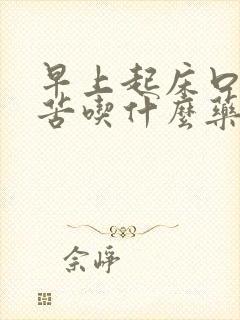 早上起床口
苦喫什麼藥
佘崢